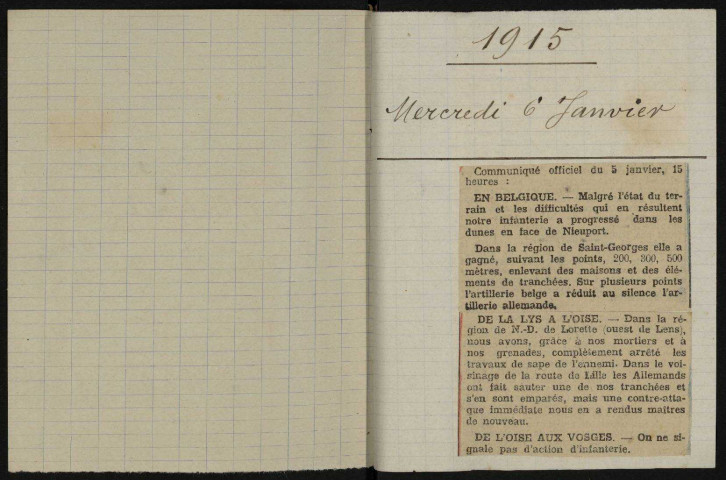 1915
Mercredi 6 Janvier
Communiqué officiel du 5 janvier, 15
heures :
EN BELGIQUE. — Malgré l'état du ter-
rain et les difficultés qui en résultent
notre infanterie a progressé dans les
dunes en face de Nieuport.
Dans la région de Saint-Georges elle a
gagné, suivant les points, 200, 300, 500
mètres, enlevant des maisons et des élé-
ments de tranchées. Sur plusieurs points
l'artillerie belge a réduit au silence l'ar-
tillerie allemande.
DE LA LYS A L'OISE. — Dans la ré-
gion de N.-D. de Lorette (ouest de Lens),
nous avons, grâce à nos mortiers et à
nos grenades, complètement arrêté les
travaux de sape de l'ennemi. Dans le voi-
sinage de la route de Lille les Allemands
ont fait sauter une de nos tranchées et
s'en sont emparés, mais une contre-atta-
que immédiate nous en a rendus maîtres
de nouveau.
DE L'OISE AUX VOSGES. — On ne si-
gnale pas d'action d'infanterie.